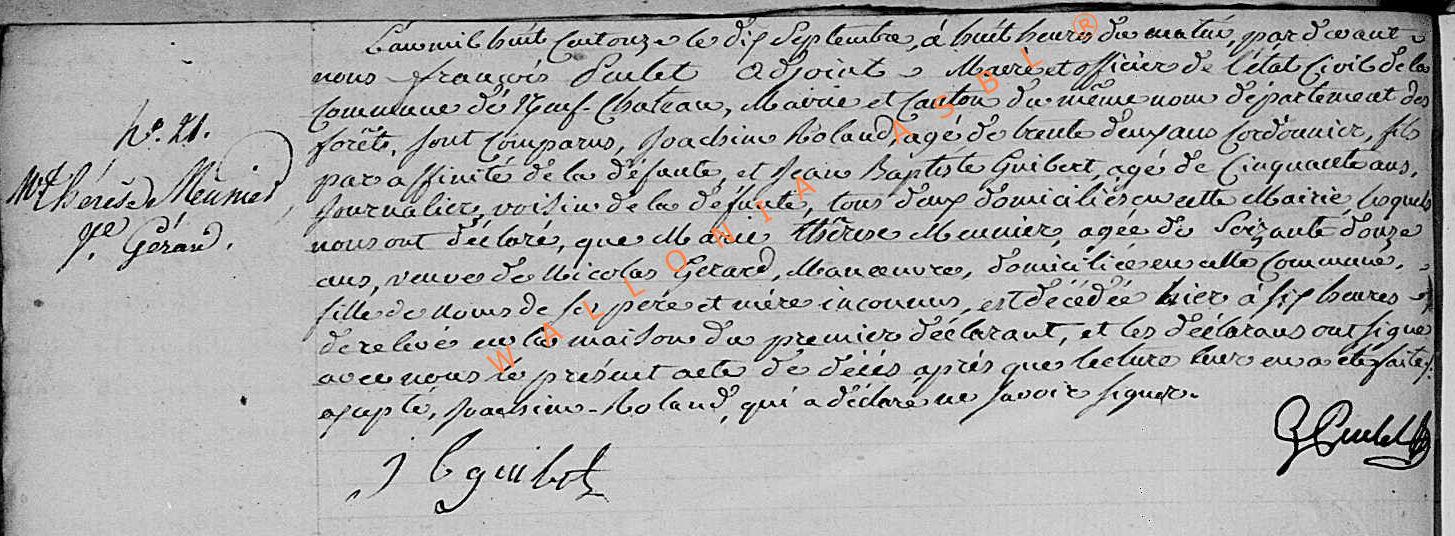 L'an mil huit cent onze le dix Septembre, á huit heures du matin, par devant
nous françois Poulet Adjoint Maire et officier de l'état Civil de la
Commune de Neuf-Chateau, Mairie et Canton du même nom département des
forêts, sont Comparus, Joachim Roland, agé de trente deux ans Cordonnier, fils
par affinité de la défunte, et Jean Baptiste Guibert, agé de Cinquante ans,
Journalier, voisin de la défunte, tous deux domiciliés en cette Mairie lesquels
nous ont déclaré, que Marie thérèse Meunier, agée de Soixante douze
ans, veuve de Nicolas Gerard, Manoeuvre, domiciliée en cette Commune,
fille de noms de ses père et mère inconnus, est décédée hier á six heures
de relevé en la maison du premier déclarant, et les déclarans ont signé
avec nous le présent acte de décés après que lecture leur en a été faite,
excepté, Joachim-Roland, qui a déclaré ne savoir signer.
N.° 21.
M. thérèse Meunier
Ve. Gérard.
J b guibert
WALLONIA ASBL ®